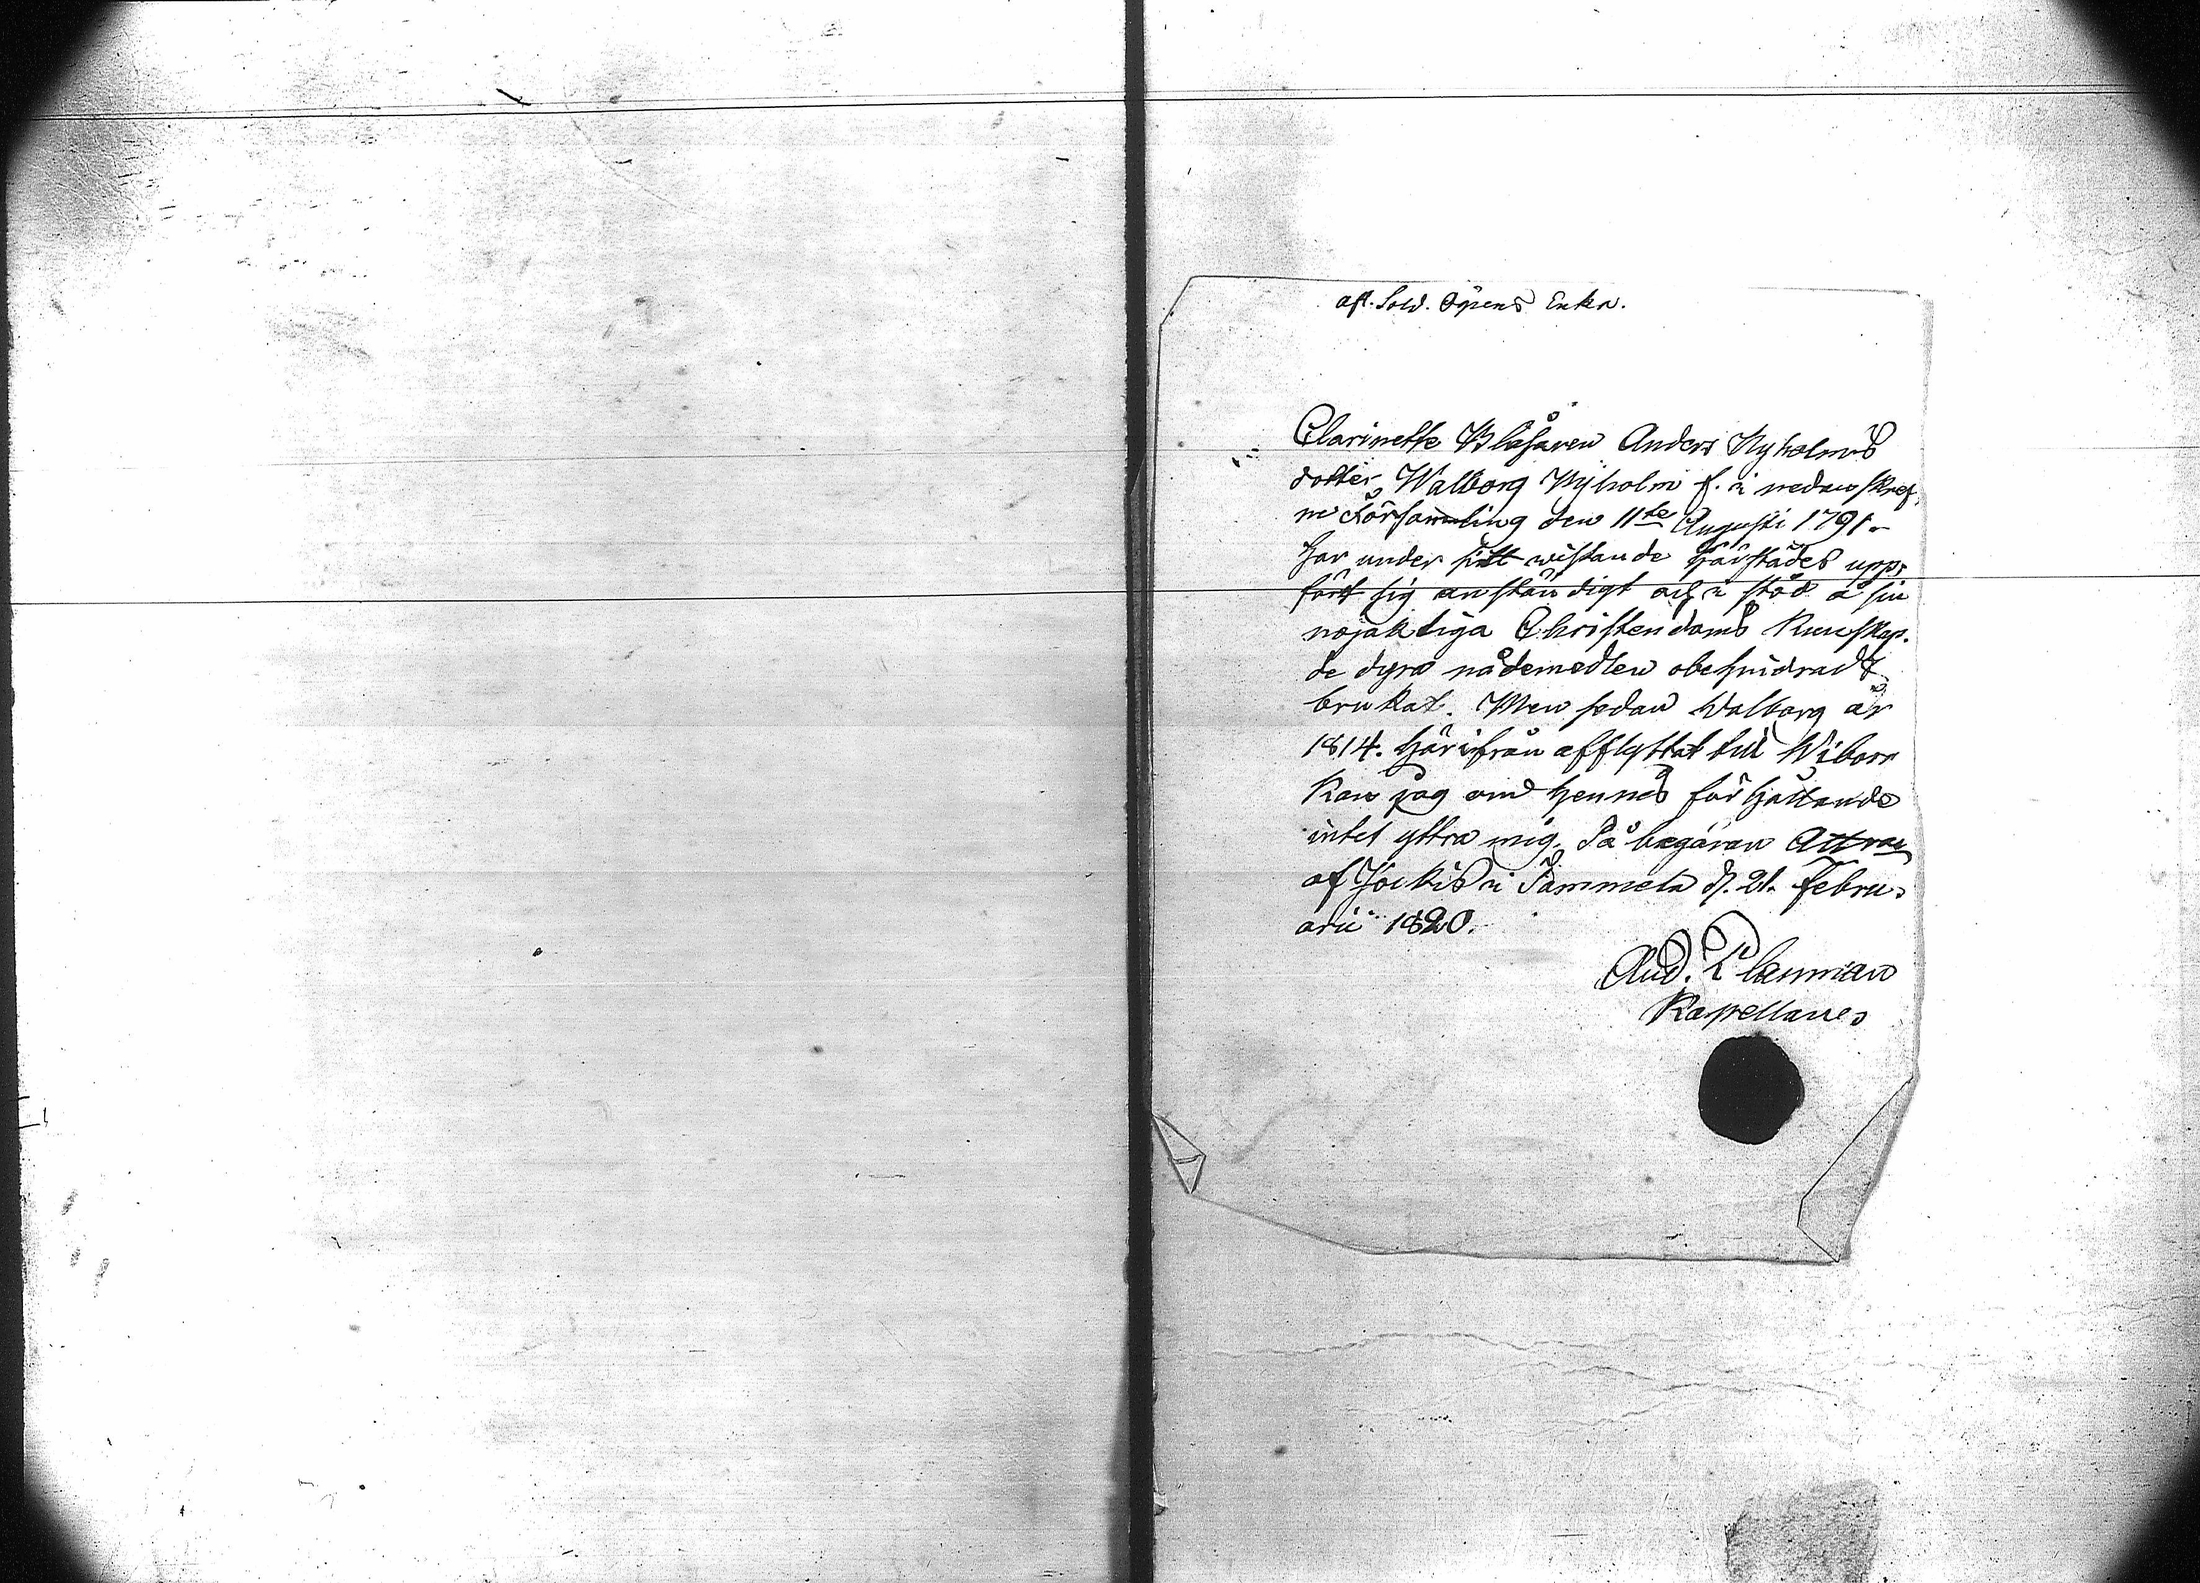 afl. Sold. Öpens Enka.
Clarinette Blåsaren Anders Nyholms
dotter Walborg Nyholm f. i nedanskref-
ne Församling den 11te Augusti 1791.
har under sitt wistande härstädes upp-
fört sig anständigt och i stöd å sin
nöjaktiga Christendoms Kunskap.
de dyra nådemedlen obehindradt
brukat. Men sedan Walborg år
1814. härifrån afflyttat till Wiborg
kan jag om hennes förhållande
intet yttra mig. På begäran Attest
af Jockis i Tammela d. 21. Febru-
arii 1820.
And. Planman
Kapellan